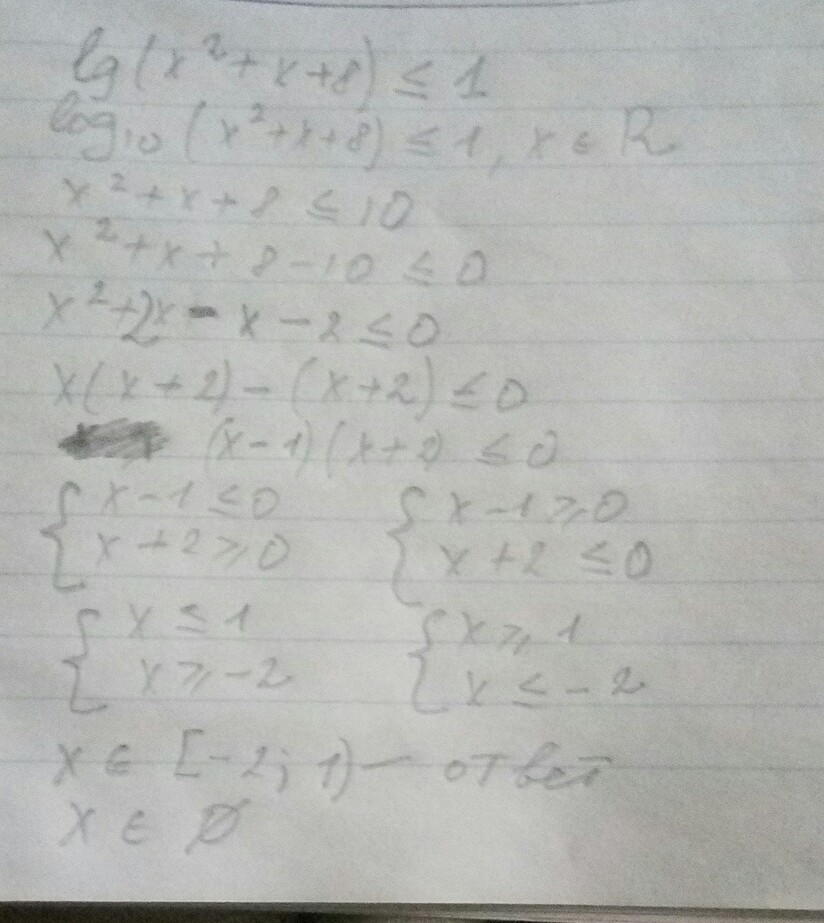 lg(x²+x+8) ≤ 1
log₁₀(x²+x+8) ≤ 1, x ∈ R
x²+x+8 ≤ 10
x²+x+8-10 ≤ 0
x²+2x-x-2 ≤ 0
x(x+2)-(x+2) ≤ 0
(x-1)(x+2) ≤ 0
{x-1 ≤ 0 {x-1 ≥ 0
x+2 ≥ 0 x+2 ≤ 0
{x ≤ 1 {x ≥ 1
x ≥ -2 x ≤ -2
x ∈ [-2; 1) — ответ
x ∈ Ø